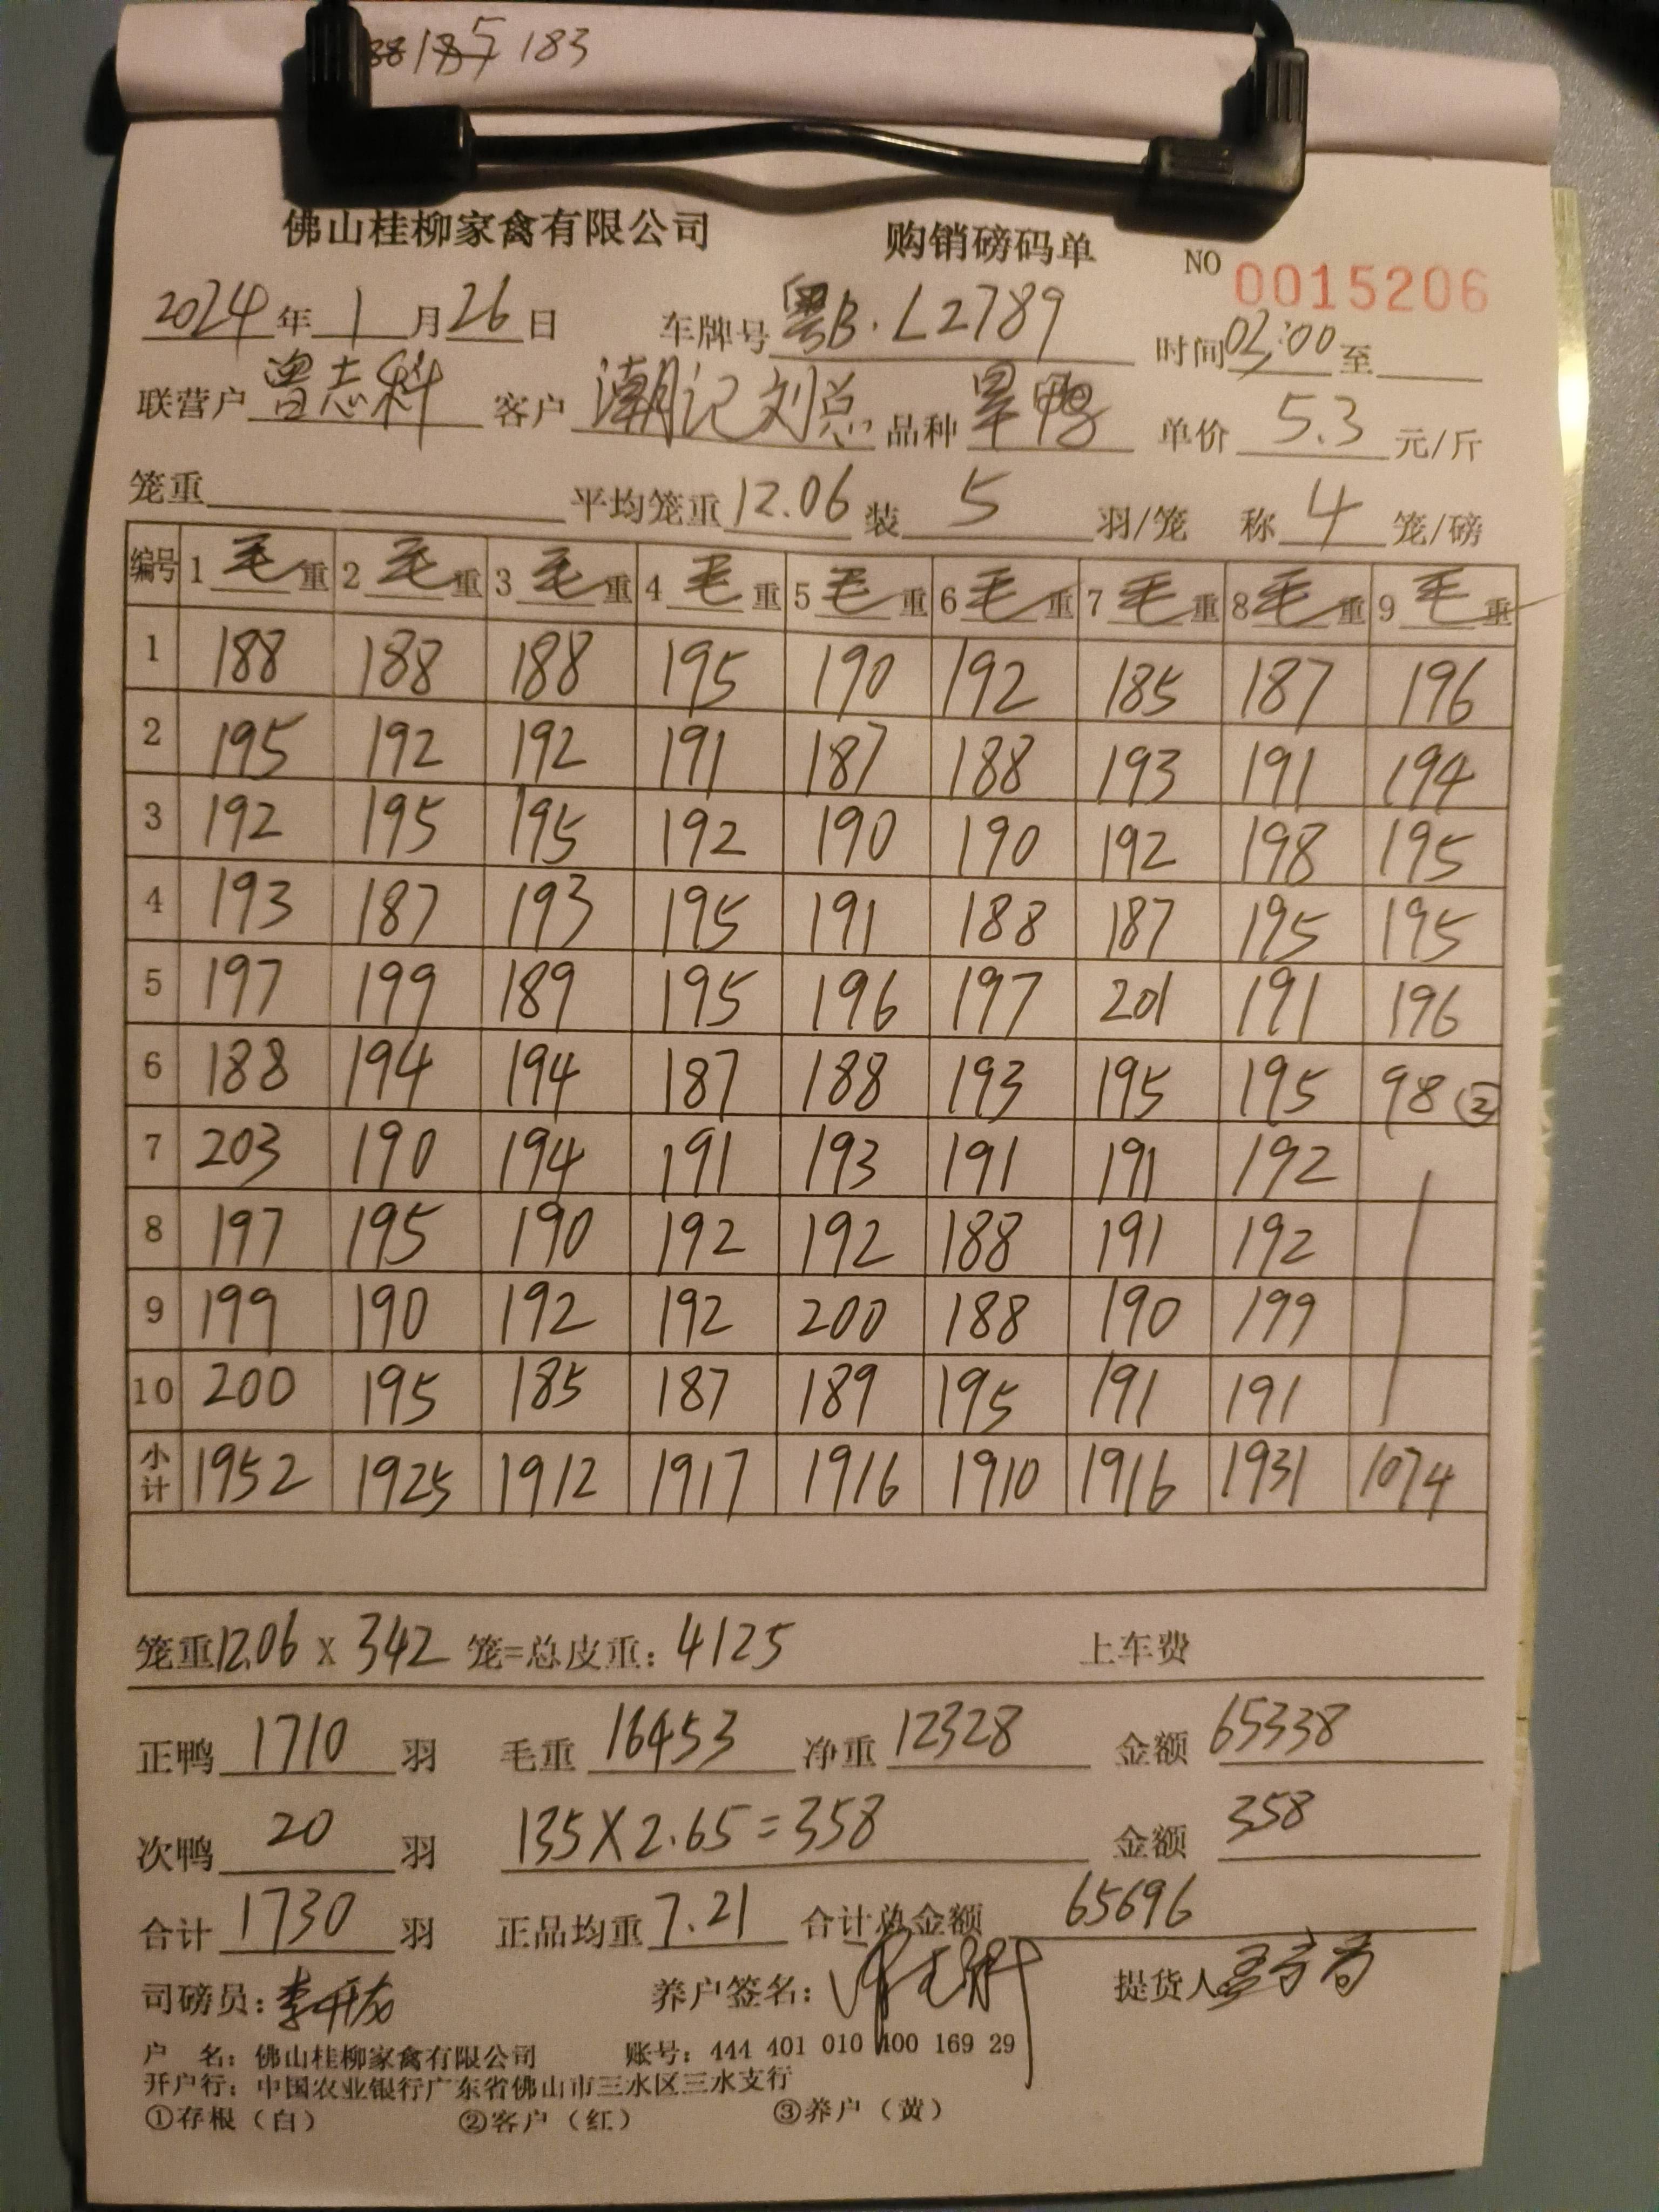 185 183
佛山桂柳家禽有限公司 购销磅码单 NO 0015206
2024年1月26日 车牌号粤B·L2789 时间03:00至
联营户曾志科 客户潮记刘总 品种旱鸭 单价5.3元/斤
笼重 平均笼重12.06 装5羽/笼 称4笼/磅
编号 1毛重 2毛重 3毛重 4毛重 5毛重 6毛重 7毛重 8毛重 9毛重
1 188 188 188 195 190 192 185 187 196
2 195 192 192 191 187 188 193 191 194
3 192 195 195 192 190 190 192 198 195
4 193 187 193 195 191 188 187 195 195
5 197 199 189 195 196 197 201 191 196
6 188 194 194 187 188 193 195 195 98②
7 203 190 194 191 193 191 191 192
8 197 195 190 192 192 188 191 192
9 199 190 192 192 200 188 190 199
10 200 195 185 187 189 195 191 191
小计 1952 1925 1912 1917 1916 1910 1916 1931 1074
笼重12.06×342笼=总皮重:4125 上车费
正鸭1710羽 毛重16453 净重12328 金额65338
次鸭20羽 135×2.65=358 金额358
合计1730羽 正品均重7.21 合计总金额65696
司磅员: 养户签名: 提货人
户 名:佛山桂柳家禽有限公司 账号:444 401 010 400 169 29
开户行:中国农业银行广东省佛山市三水区三水支行
①存根(白) ②客户(红) ③养户(黄)